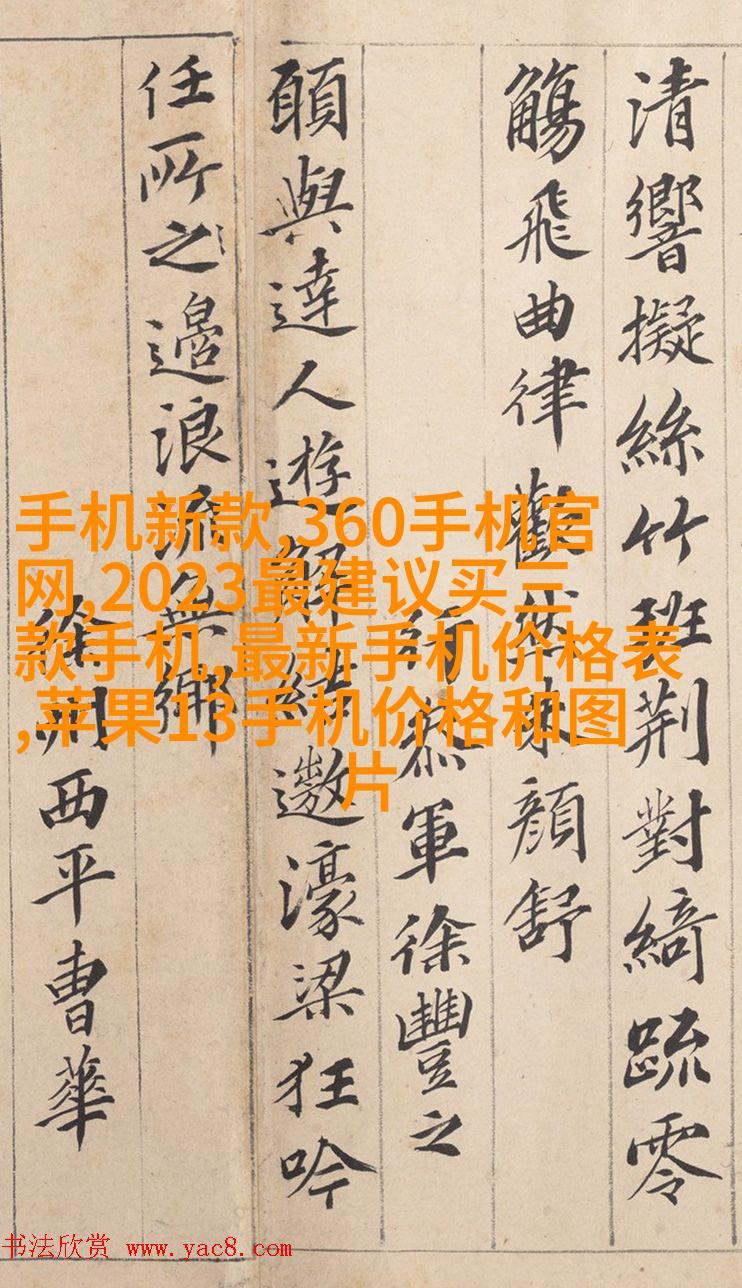 清響擬絲竹班荆對綺疏零
觴飛曲律歡然朱顏舒
行叅軍徐豐之
願與達人遊解結邀濠梁狂吟
任所之邊浪流無鄉
徐州西平曹華
手机新款,360手机官
网,2023最建议买三
款手机,最新手机价格表
,苹果13手机价格和图
片
书法欣赏 www.yac8.com